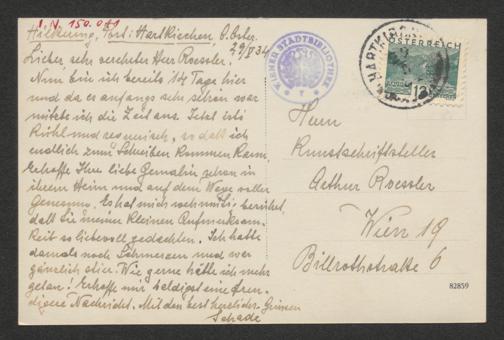 I. N. 150.081
Hilkering, Post: Hartkirchen, O. Öster.
29/V 34
Lieber, sehr verehrter Herr Roessler!
Nun bin ich bereits 14 Tage hier
und da es anfangs sehr schön war
nützte ich die Zeit aus. Jetzt ists
kühl und regnerisch, so daß ich
endlich zum Schreiben kommen kann.
Erhoffe Ihre liebe Gemahlin schon in
ihrem Heim und auf dem Wege voller
Genesung. Es hat mich
daß Sie meiner kleinen Aufmerksam-
keit so liebevoll gedachten. Ich hatte
damals noch Schmerzen und war
gänzlich Wie gerne hätte ich mehr
getan! Erhoffe mir baldigst eine freu-
digere Nachricht. Mit den best herzlichen Grüssen
WIENER STADTBIBLIOTHEK
HARTKIRCHEN
ÖSTERREICH
12
Herrn
Kunstschriftsteller
Arthur Roessler
Wien 19
Billrothstraße 6
82859